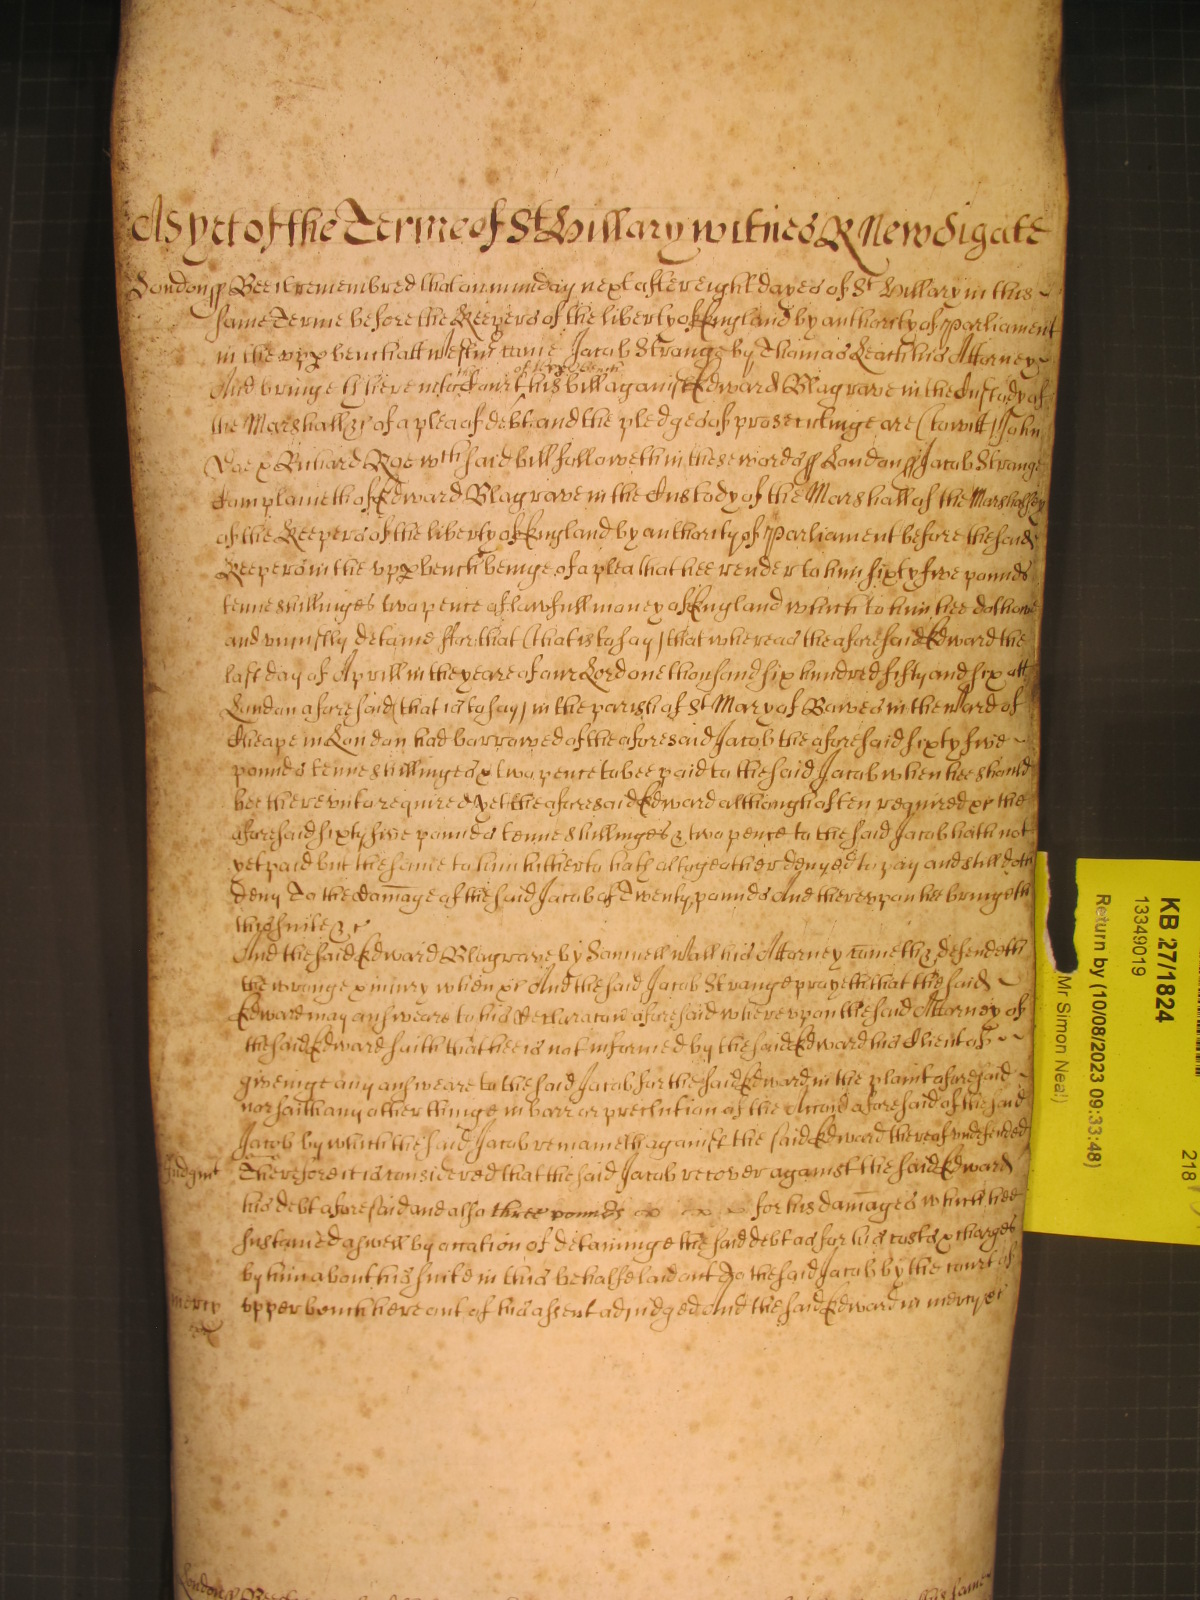 As yet of the Terme of St Hillary witnes R Newdigate
London ss Bee it remembred that on munday next after eight dayes of St Hillary in this
same Terme before the Keepers of the liberty of England by authority of Parliament
in the upp bench att Westmr came Jacob Strange by Thomas Leach his Attorney
And bringeth here into Court this bill against Edward Blagrave in the Custody of
the Marshall &c of a plea of debt and the pledges of prosecutinge are (to witt) John
Doe & Richard Roe wch said bill followeth in these words ss London ss Jacob Strange
Complaineth of Edward Blagrave in the Custody of the Marshall of the Marshalsey
of the Keepers of the liberty of England by authority of Parliament before the said
Keepers in the upp bench beinge of a plea that hee render to him sixty five pounds
tenne shillinges two pence of lawfull money of England which to him hee doth owe
and uniustly detaine ffor that (that is to say) that whereas the aforesaid Edward the
last day of Aprill in the yeare of our Lord one thousand six hundred fifty and six att
London aforesaid (that is to say) in the parish of St Mary of Bowes in the Ward of
Cheape in London had borrowed of the aforesaid Jacob the aforesaid sixty five
pounds tenne shillinges & two pence to bee paid to the said Jacob when hee should
bee thereunto required yet the aforesaid Edward although often required &c the
aforesaid sixty five pounds tenne shillinges & two pence to the said Jacob hath not
yet paid but the same to him hitherto hath altogeather denyed to pay and still doth
deny To the damage of the said Jacob of Twenty pounds And thereupon hee bringeth
this suite &c
And the said Edward Blagrave by Samuell Wall his Attorney cometh & defendeth
the wronge & iniury when &c And the said Jacob Strange prayeth that the said
Edward may answeare to his declaracon aforesaid whereupon the said Attorney of
the said Edward saith that hee is not informed by the said Edward his Client of
giveinge any answeare to the said Jacob for the said Edward in the plaint aforesaid
nor saith any other thinge in barr or preclution of the Accon aforesaid of the said
Jacob by which the said Jacob remaineth against the said Edward thereof undefended
Judgmt Therefore it is considered that the said Jacob recover against the said Edward
his debt aforesaid and also three pounds for his damages which hee
sustained aswell by occation of detaininge the said debt as for his costs & charges
by him about his suite in this behalfe laid out To the said Jacob by the court of
mercy upper bench here out of his assent adiudged And the said Edward in mercy &c
London ss Bee
this same
KB 27/1824
13349019
Return by (10/08/2023 09:33:48)
Mr Simon Neal)
218